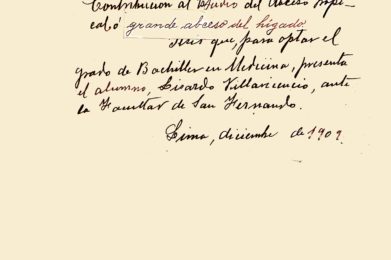 Contribucion al Studio del Abceso tropi-
cal ó grande abceso del hígado
Tesis que, para optar el
grado de Bachiller en Medicina, presenta
el alumno, Lisardo Villavicencio, ante
la Facultad de San Fernando.
Lima, diciembre de 1909.